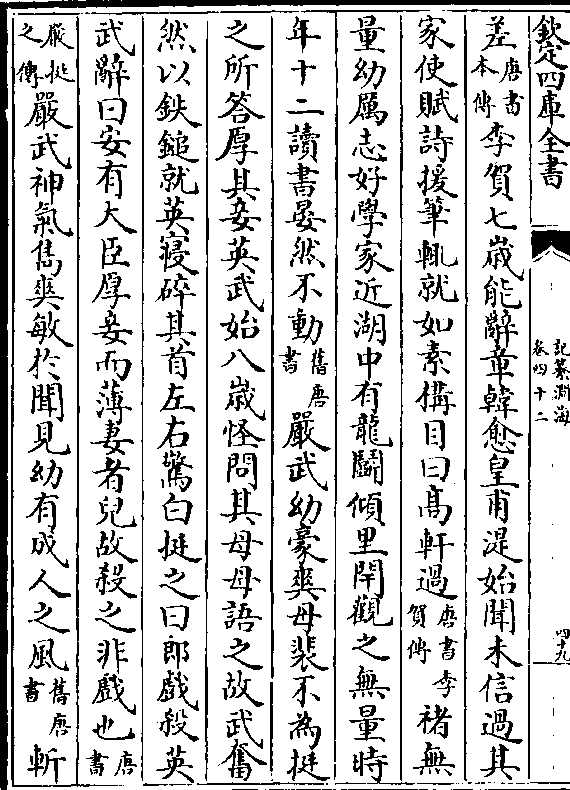 欽定四庫全書
記纂淵海
卷四十二
四十九
差唐書本傳李賀七歲能辭章韓愈皇甫湜始聞未信過其
家使賦詩援筆輒就如素構目曰高軒過唐書李賀傳褚無
量幼厲志好學家近湖中有龍鬭傾里閈觀之無量時
年十二讀書晏然不動舊唐書嚴武幼豪爽母裴不為挺
之所答厚其妾英武始八歲怪問其母母語之故武奮
然以鉄鎚就英寢碎其首左右驚白挺之曰郎戲殺英
武辭曰安有大臣厚妾而薄妻者兒故殺之非戲也唐書
嚴挺之傳嚴武神氣雋爽敏於聞見幼有成人之風舊唐書斬